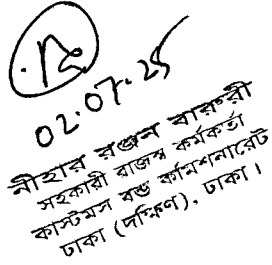 02.07.25
নীহার রঞ্জন বারুরী
সহকারী রাজস্ব কর্মকর্তা
কাস্টমস বন্ড কমিশনারেট
ঢাকা (দক্ষিণ), ঢাকা।